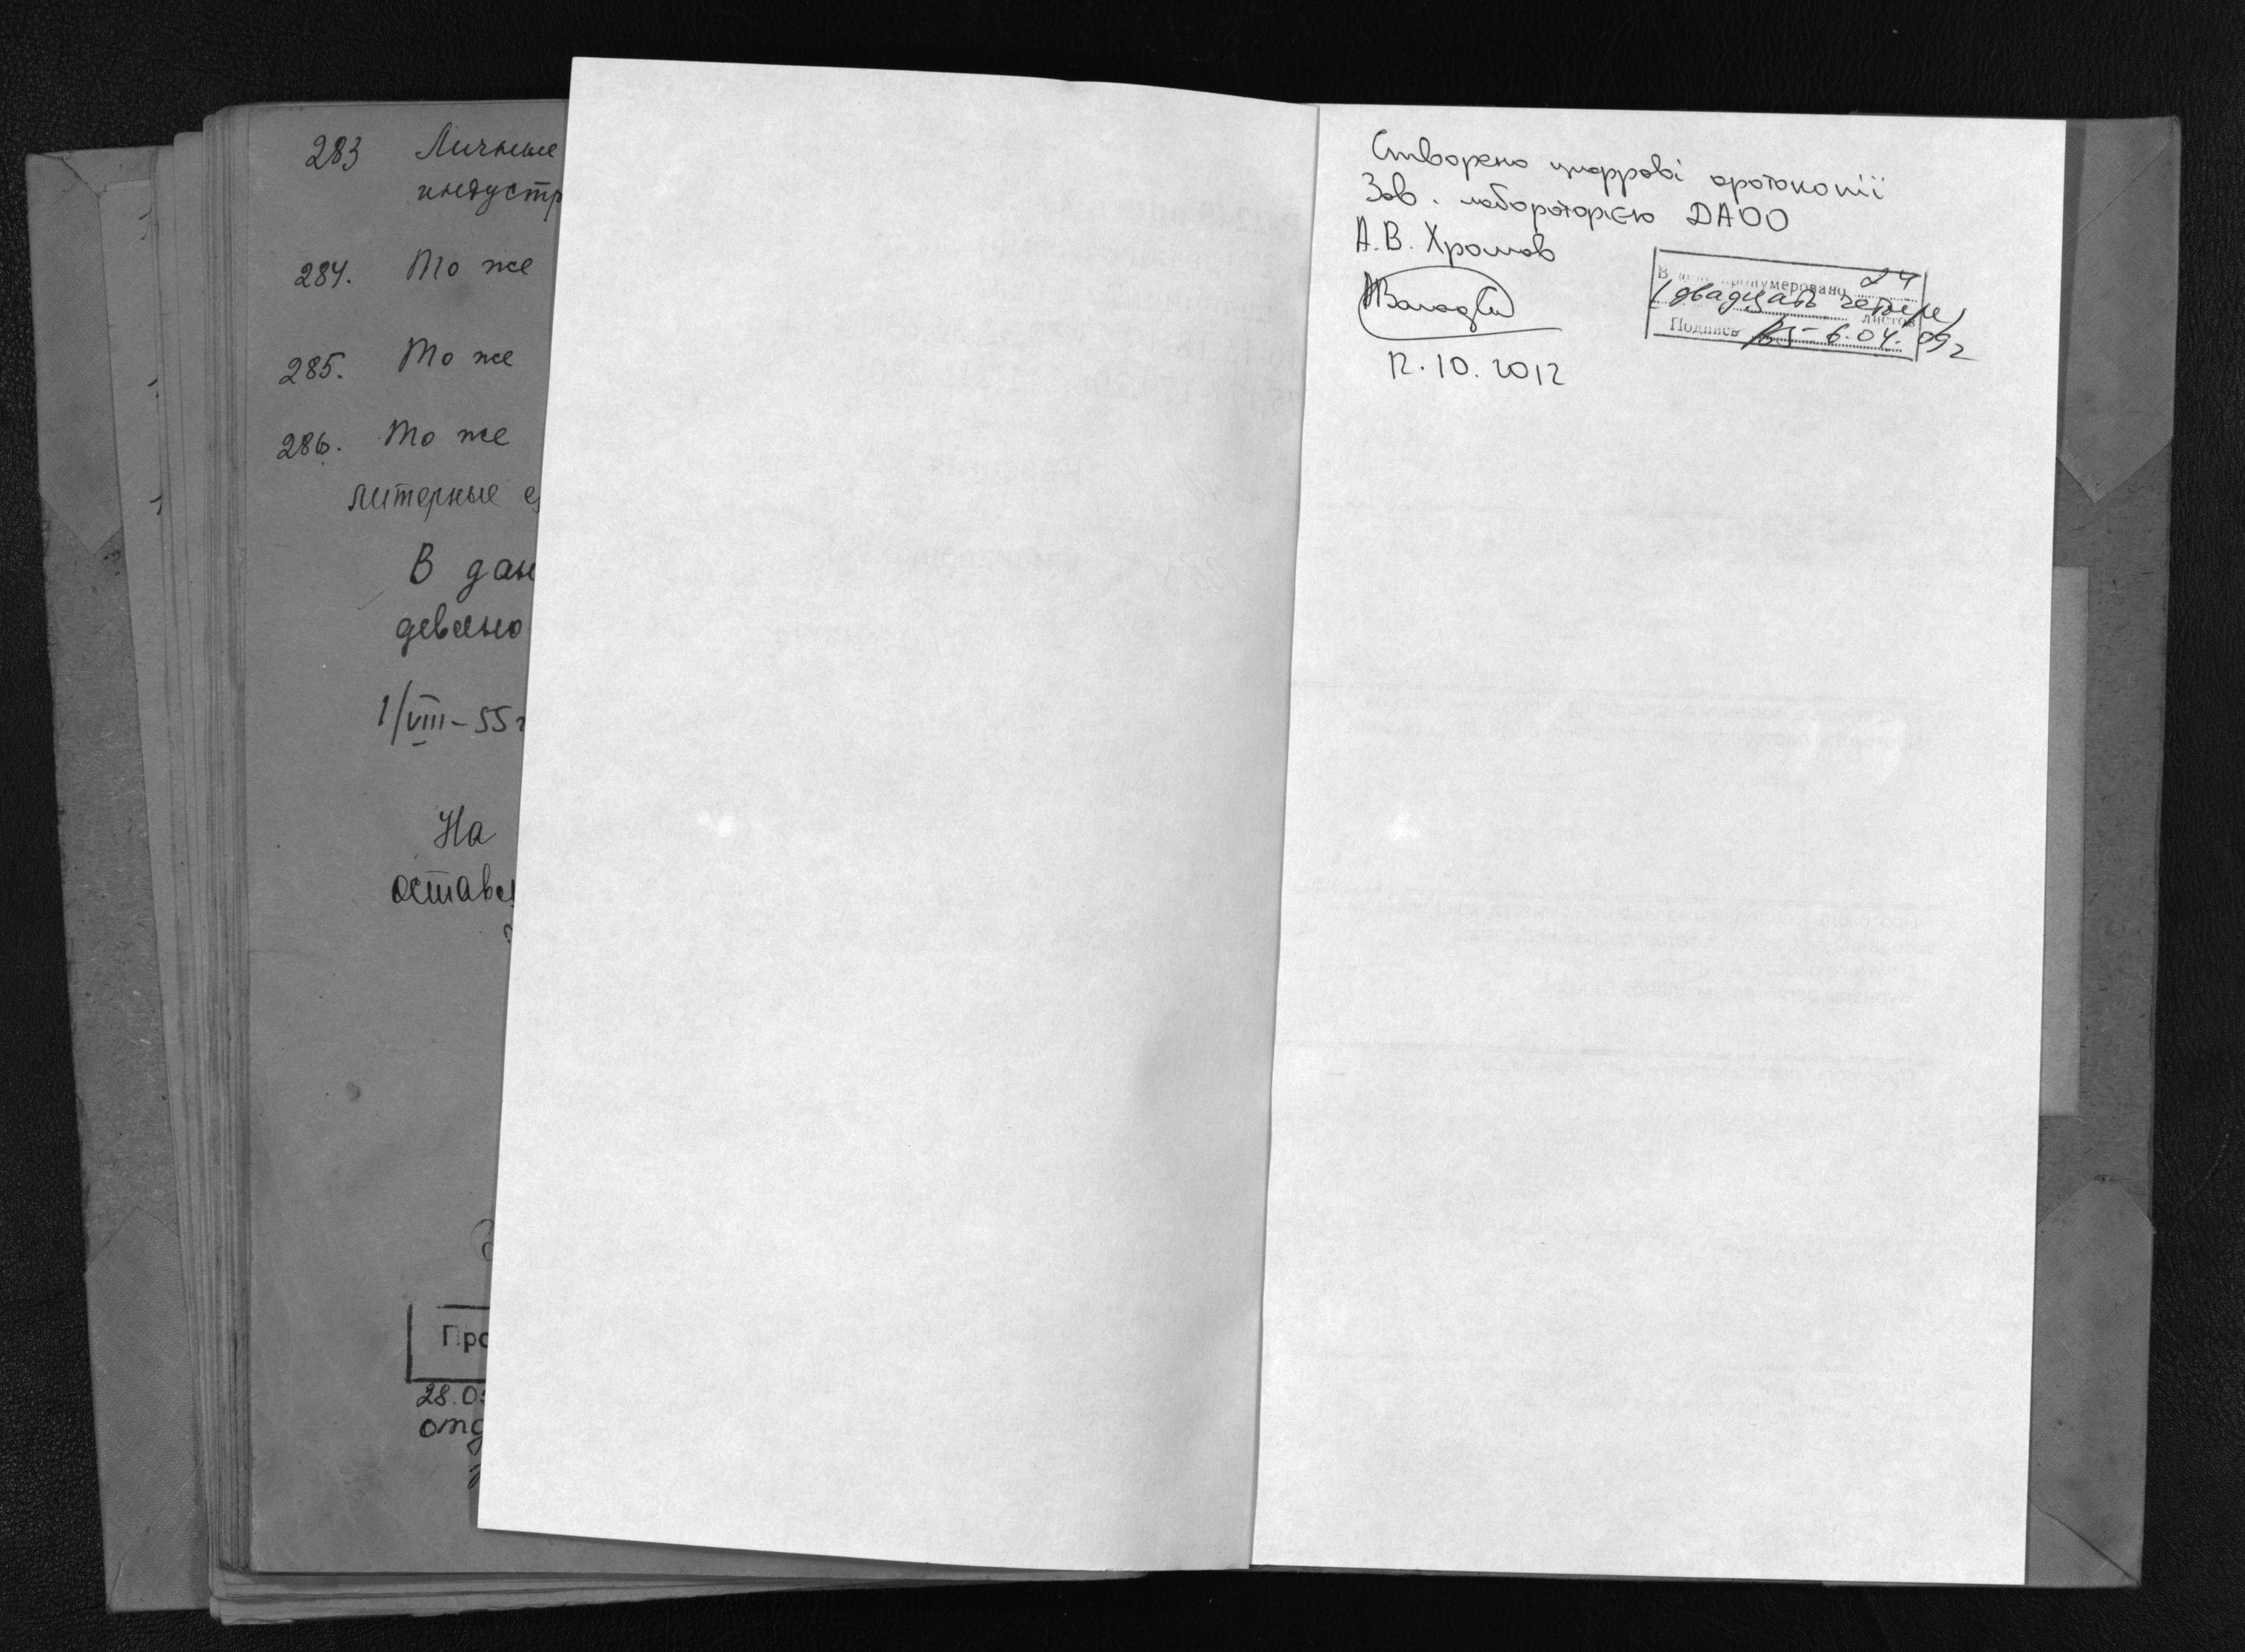 283 Личные
индустр
284. То же
285. То же
286. То же
литерные
В дан
девяно
1/VIII-55г
На
оставл
Про
28.0
отд
Створено цифрові фотокопії
Зав. лабораторією ДАОО
А.В. Хромов
12.10.2012
В пронумеровано 24
(двадцать четыре)
листов
Подпись 6.04.09г